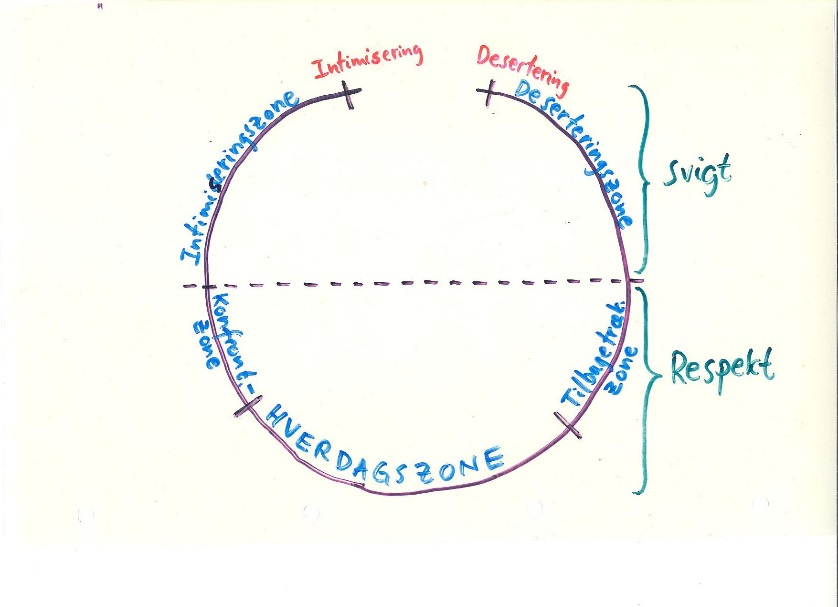 Intimisering
Desertering
Intimiseringszone
Deserteringszone
svigt
Konfront.-
zone
Tilbagetræk.
zone
Respekt
HVERDAGSZONE